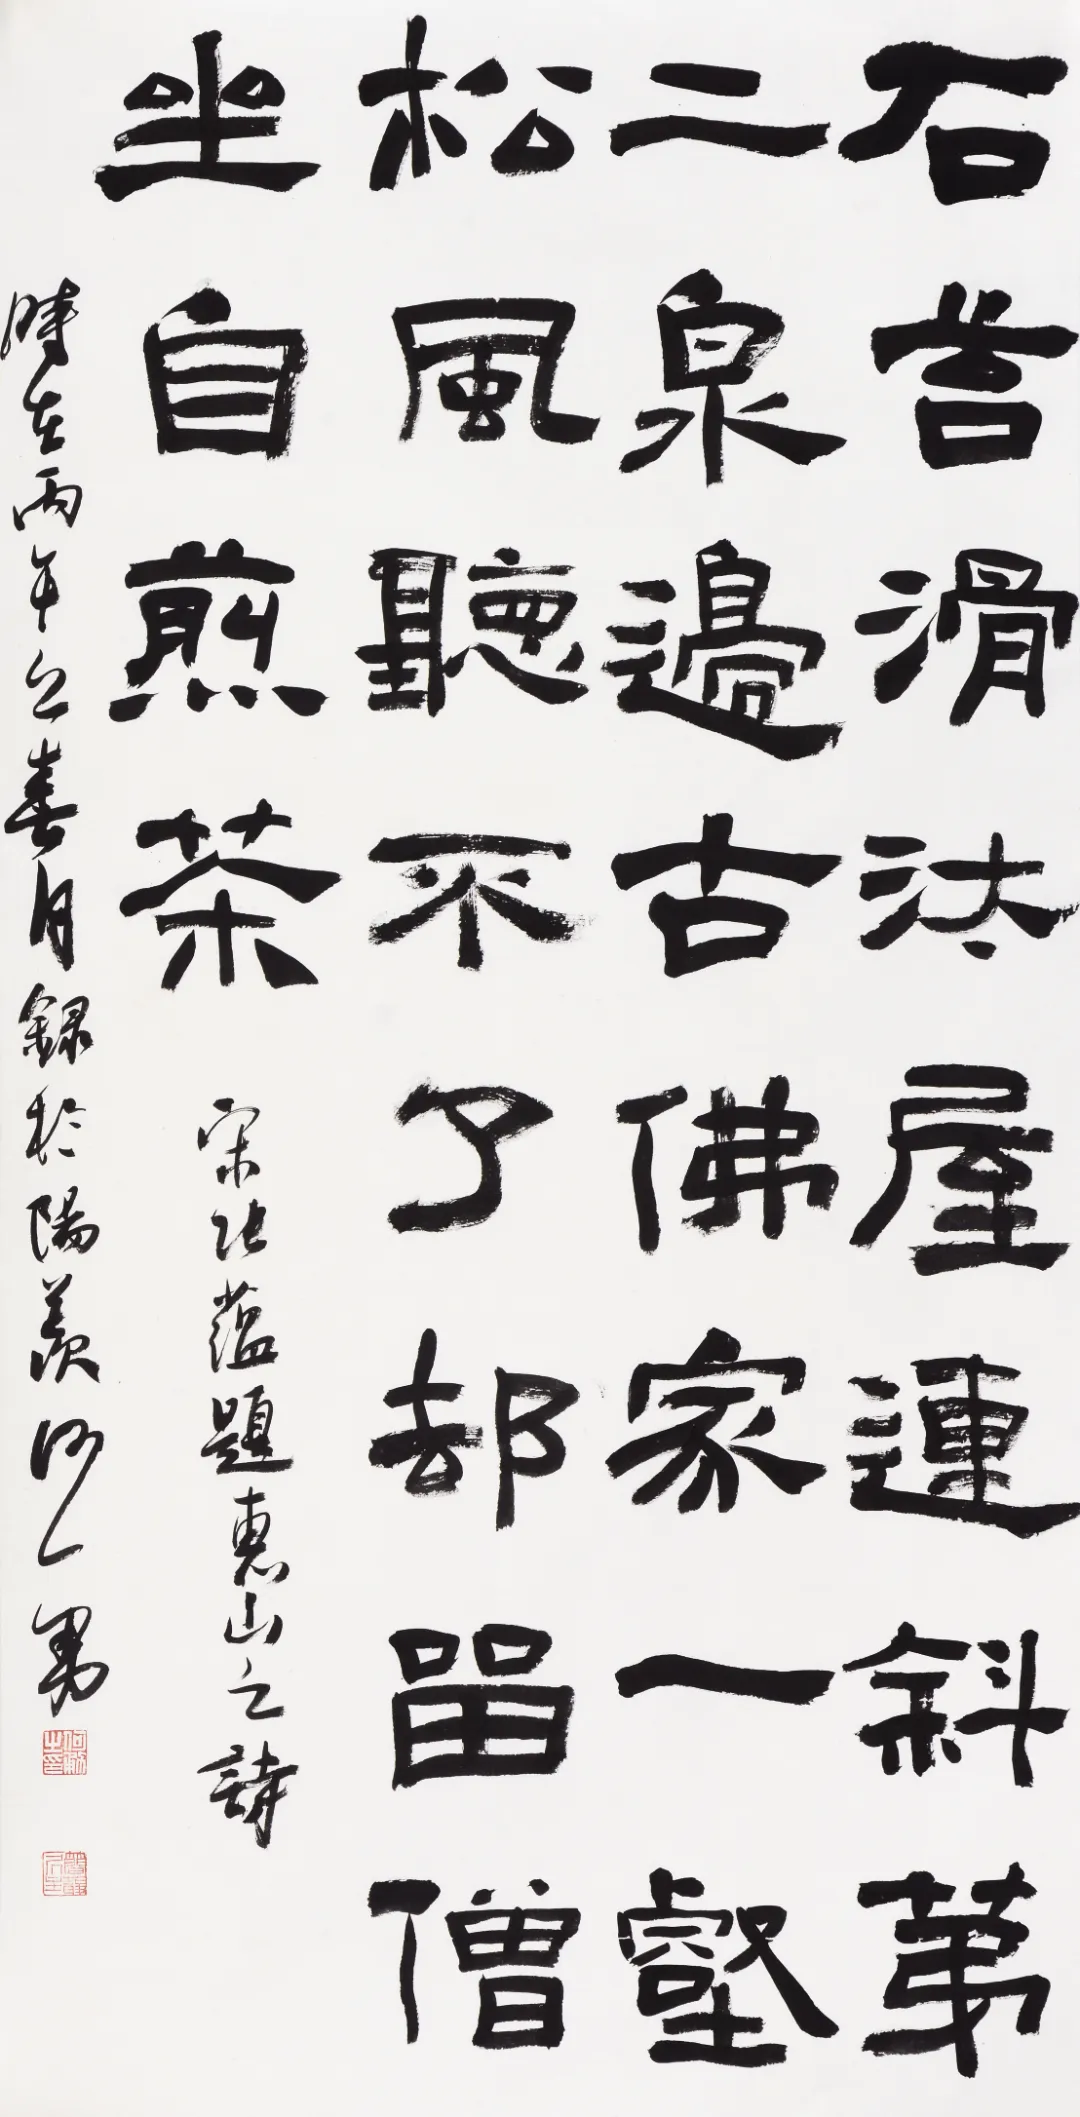 石苔滑汰屋連斜苐
二泉邊古佛家一壑
松風聽不了却留僧
坐自煎茶
宋張蘊題惠山之詩
時在丙午之春月錄於陽羨